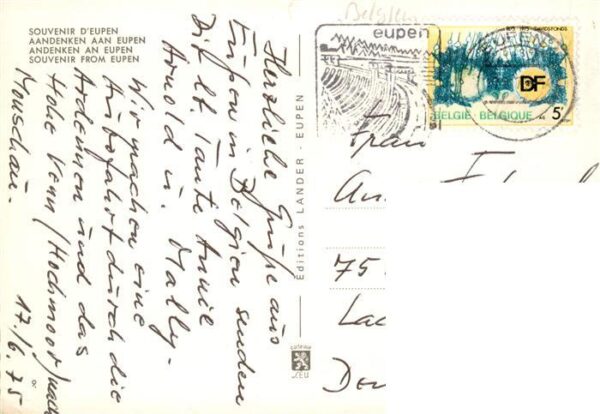 SOUVENIR D'EUPEN
AANDENKEN AAN EUPEN
ANDENKEN AN EUPEN
SOUVENIR FROM EUPEN
Herzliche Grüße aus
Eupen in Belgien senden
Dir lb. Tante Annie
Arnold u. Mally.
Wir machen eine
Autofahrt durch die
Ardennen und das
Hohe Venn/Hochmoor/nach
Monschau.
17./6.75
Editions LANDER - EUPEN
Belgien
eupen
EUPEN
1875 1975 DAVIDSFONDS
DF
BELGIË BELGIQUE 5F
Frau
75